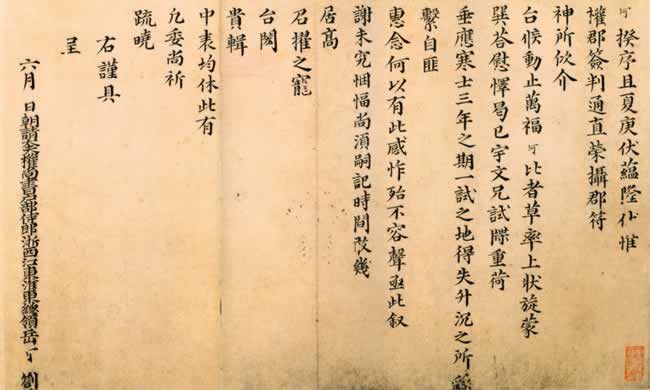 可揆序且夏庚伏蘊隆伏惟
權郡簽判通直榮攝郡符
神所依介
台候動止萬福可比者草率上狀旋蒙
巽荅慰懌曷已宇文兄試牒重荷
垂應寒士三年之期一試之地得失升沉之所
繫自匪
惠念何以有此感怍殆不容聲亟此叙
謝未究悃愊尚須嗣記時間敢幾
居高
召擢之寵
台閤
貴輯
中表均休此有
凢委尚祈
疏曉
右謹具
呈
六月 日朝請大夫權尚書户部侍郎浙西江東淮東總領岳可劄